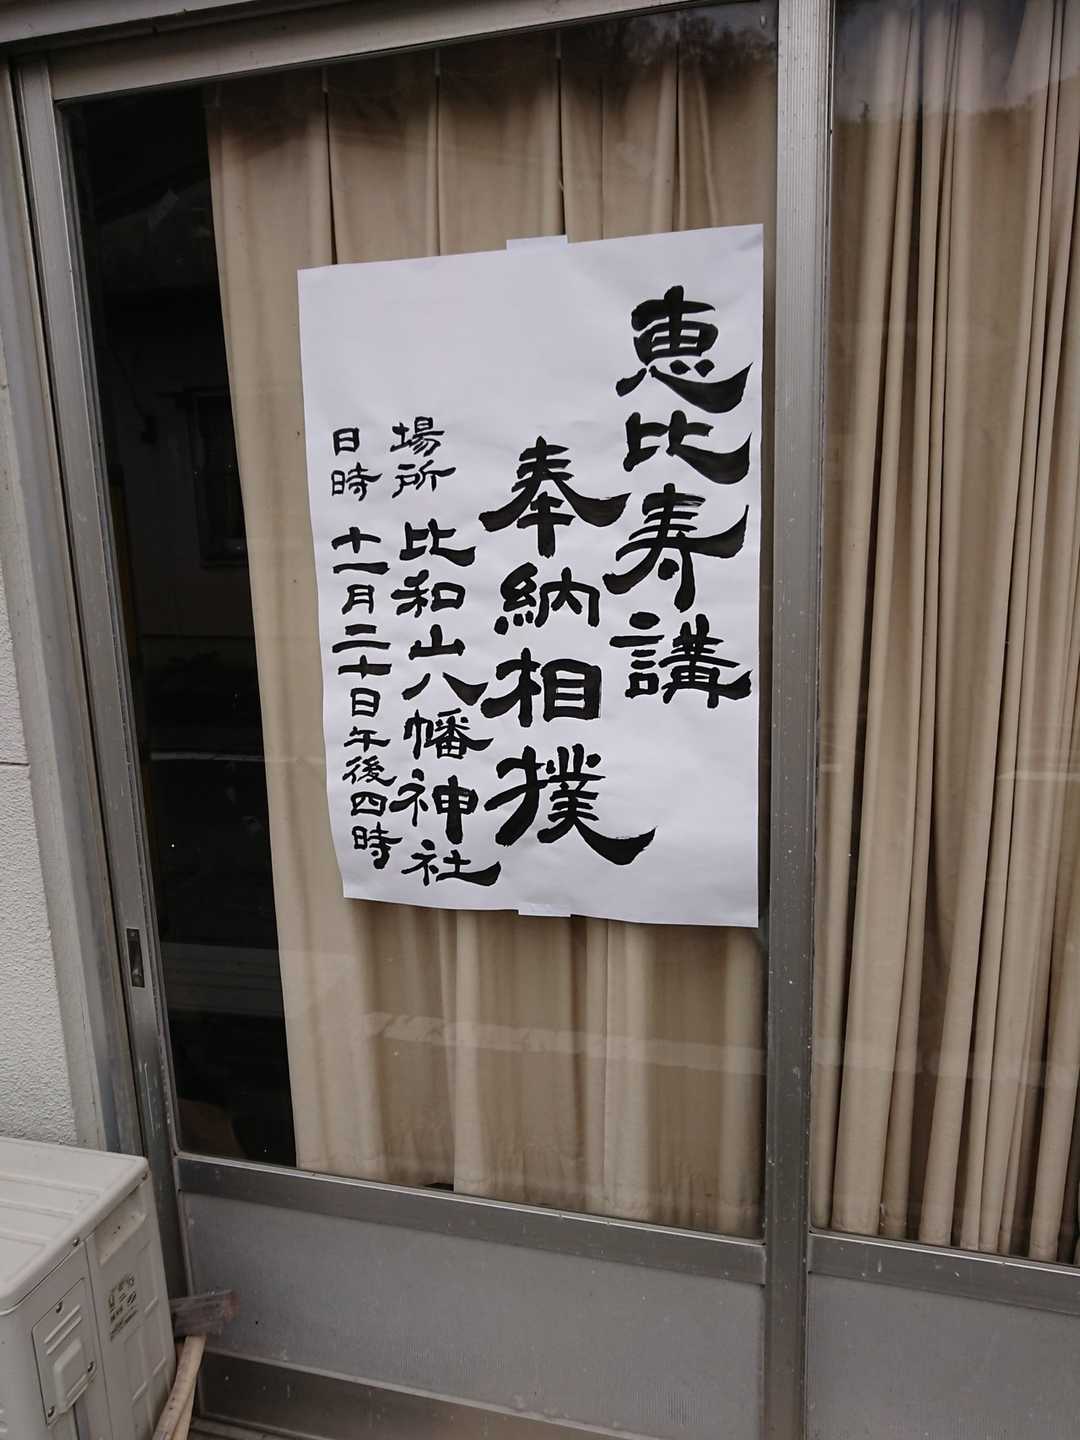 恵比寿講
奉納相撲
場所 比和山八幡神社
日時 十一月二十日午後四時